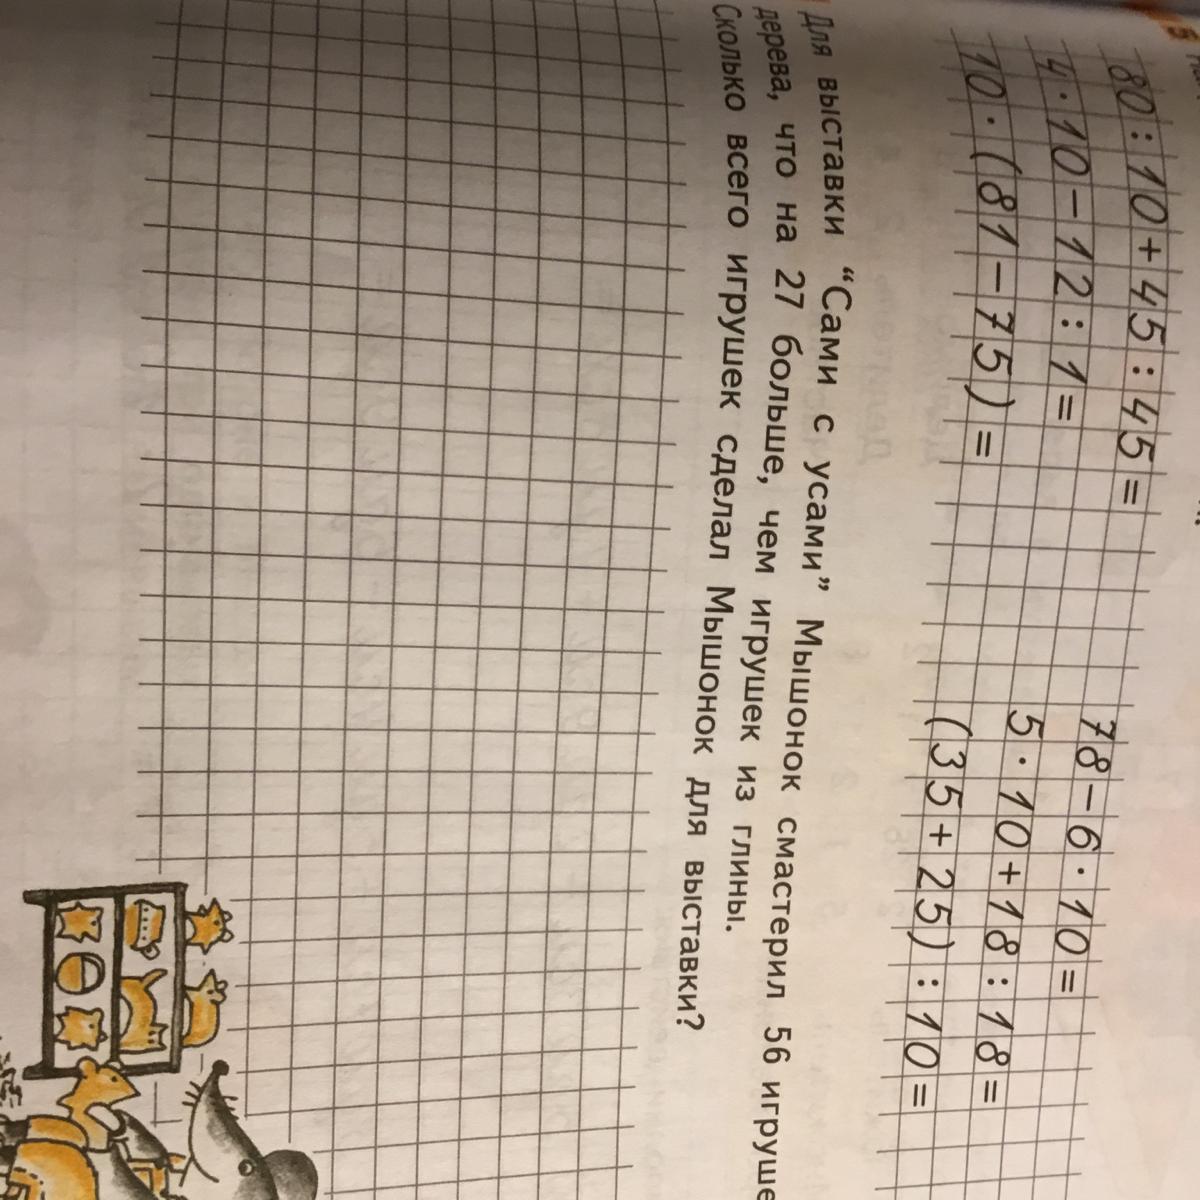 80 : 10 + 45 : 45 =
4 · 10 − 12 : 1 =
10 · (81 − 75) =
78 − 6 · 10 =
5 · 10 + 18 : 18 =
(35 + 25) : 10 =
Для выставки “Сами с усами” Мышонок смастерил 56
дерева, что на 27 больше, чем игрушек из глины.
Сколько всего игрушек сделал Мышонок для выставки?